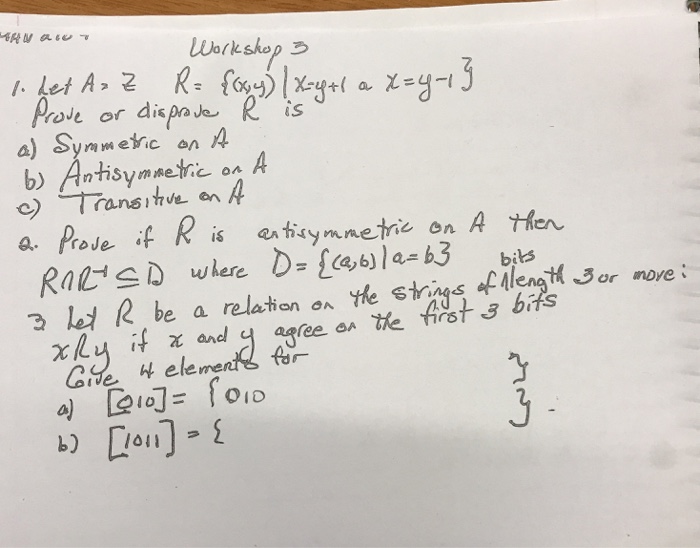 Workshop 3
1. Let A = Z R = {(x,y) | x=y+1 a x=y-1}
Prove or disprove R is
a) Symmetric on A
b) Antisymmetric on A
c) Transitive on A
2. Prove if R is antisymmetric on A then
R∩R⁻¹ ⊆ D where D = {(a,b) | a=b}
3 Let R be a relation on the strings of bits length 3 or more:
xRy if x and y agree on the first 3 bits
Give 4 elements for
a) [010] = {010 }
b) [1011] = { }.